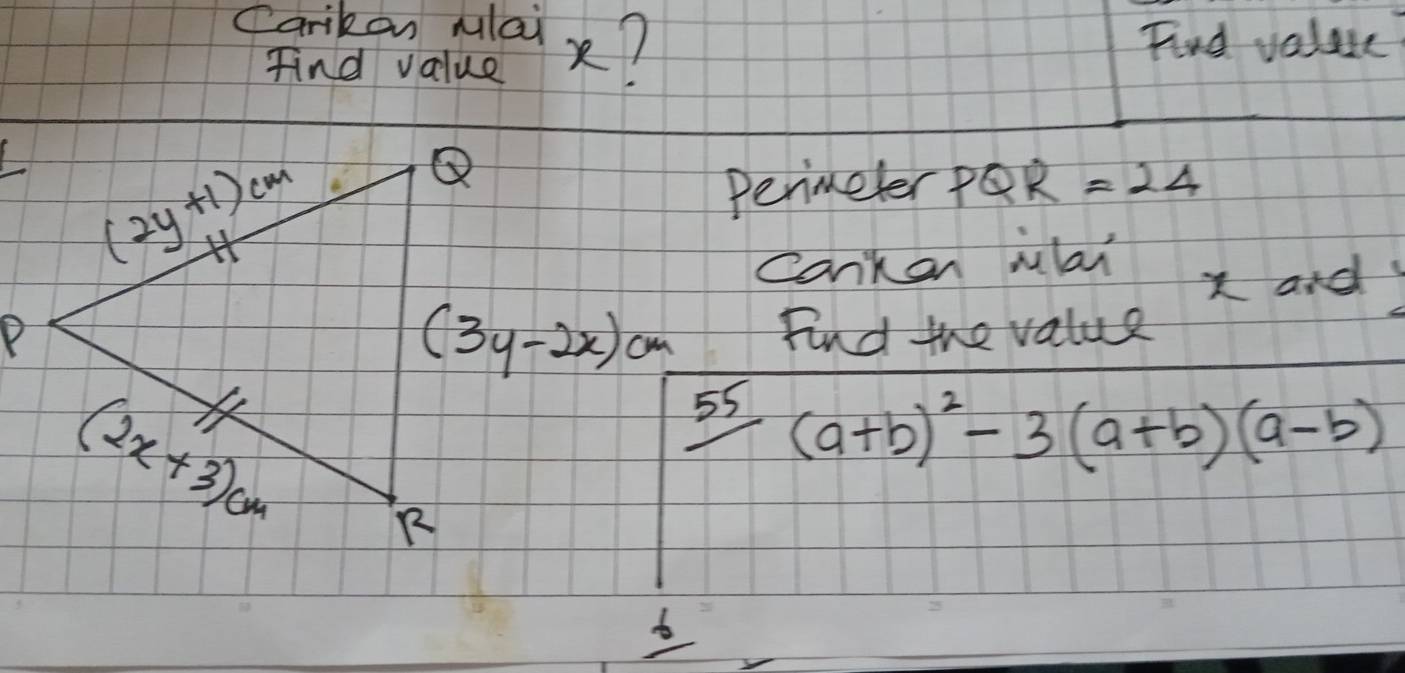 Carikan nilai x?
Find value
Find value
(2y+1)cm
Q
Perimeter PQR = 24
Carikan nilai x and
Find the value
P
(3y-2x)cm
(2x+3)cm
R
55 (a+b)² - 3(a+b)(a-b)
6